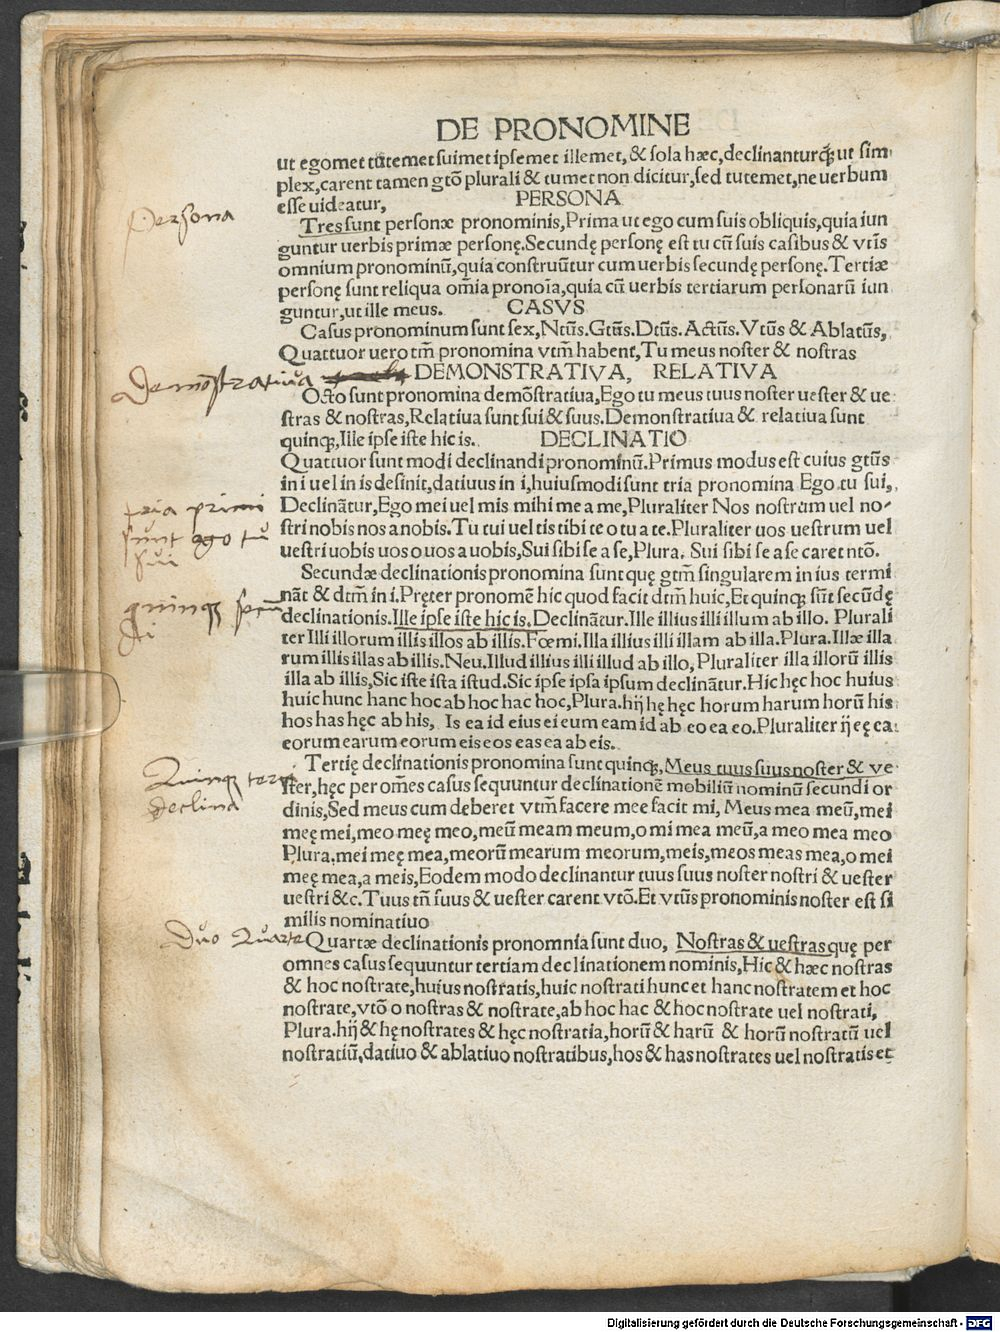 DE PRONOMINE
ut egomet tutemet suimet ipsemet illemet, & sola hæc, declinanturq̃ ut sim
plex, carent tamen gtō plurali & tumet non dicitur, sed tutemet, ne uerbum
esse uideatur, PERSONA
Persona
Tres sunt personæ pronominis, Prima ut ego cum suis obliquis, quia iun
guntur uerbis primæ personę. Secundę personę est tu cū suis casibus & vtīs
omnium pronominū, quia construūtur cum uerbis secundę personę. Tertiæ
personę sunt reliqua om̄ia pronoīa, quia cū uerbis tertiarum personarū iun
guntur, ut ille meus. CASVS
Casus pronominum sunt sex, Ntūs. Gtūs. Dtūs. Actūs. Vtūs & Ablatūs,
Quattuor uero tm̄ pronomina vtm̄ habent, Tu meus noster & nostras
Demōstratiua
DEMONSTRATIVA, RELATIVA
Octo sunt pronomina demōstratiua, Ego tu meus tuus noster uester & ue
stras & nostras, Relatiua sunt sui & suus. Demonstratiua & relatiua sunt
quinq;, Ille ipse iste hic is. DECLINATIO
Quattuor sunt modi declinandi pronominū. Primus modus est cuius gtūs
in i uel in is desinit, datiuus in i, huiusmodi sunt tria pronomina Ego tu sui,
tria primi
sunt ego tu
sui
Declinātur, Ego mei uel mis mihi me a me, Pluraliter Nos nostrum uel no-
stri nobis nos a nobis. Tu tui uel tis tibi te o tu a te. Pluraliter uos uestrum uel
uestri uobis uos o uos a uobis, Sui sibi se a se, Plura. Sui sibi se a se caret ntō.
Secundæ declinationis pronomina sunt quę gtm̄ singularem in ius termi
quinq;
nāt & dtm̄ in i. Pręter pronomē hic quod facit dtm̄ huic, Et quinq; sūt secūdę
declinationis. Ille ipse iste hic is. Declinātur. Ille illius illi illum ab illo. Plurali
ter Illi illorum illis illos ab illis. Fœmi. Illa illius illi illam ab illa. Plura. Illæ illa
rum illis illas ab illis. Neu. Illud illius illi illud ab illo, Pluraliter illa illorū illis
illa ab illis, Sic iste ista istud. Sic ipse ipsa ipsum declinātur. Hic hęc hoc huius
huic hunc hanc hoc ab hoc hac hoc, Plura. hij hę hęc horum harum horū his
hos has hęc ab his, Is ea id eius ei eum eam id ab eo ea eo. Pluraliter ij eę ea
eorum earum eorum eis eos eas ea ab eis.
Quinq; terti
declina
Tertię declinationis pronomina sunt quinq;, Meus tuus suus noster & ve
ster, hęc per om̄es casus sequuntur declinationē mobiliū nominū secundi or
dinis, Sed meus cum deberet vtm̄ facere mee facit mi, Meus mea meū, mei
meę mei, meo meę meo, meū meam meum, o mi mea meū, a meo mea meo
Plura. mei meę mea, meorū mearum meorum, meis, meos meas mea, o mei
meę mea, a meis, Eodem modo declinantur tuus suus noster nostri & uester
uestri &c. Tuus tn̄ suus & uester carent vtō. Et vtūs pronominis noster est si
milis nominatiuo
Duo Quarte
Quartæ declinationis pronomnia sunt duo, Nostras & uestras quę per
omnes casus sequuntur tertiam declinationem nominis, Hic & hæc nostras
& hoc nostrate, huius nostratis, huic nostrati hunc et hanc nostratem et hoc
nostrate, vtō o nostras & nostrate, ab hoc hac & hoc nostrate uel nostrati,
Plura. hij & hę nostrates & hęc nostratia, horū & harū & horū nostratū uel
nostratiū, datiuo & ablatiuo nostratibus, hos & has nostrates uel nostratis et
Digitalisierung gefördert durch die Deutsche Forschungsgemeinschaft - DFG